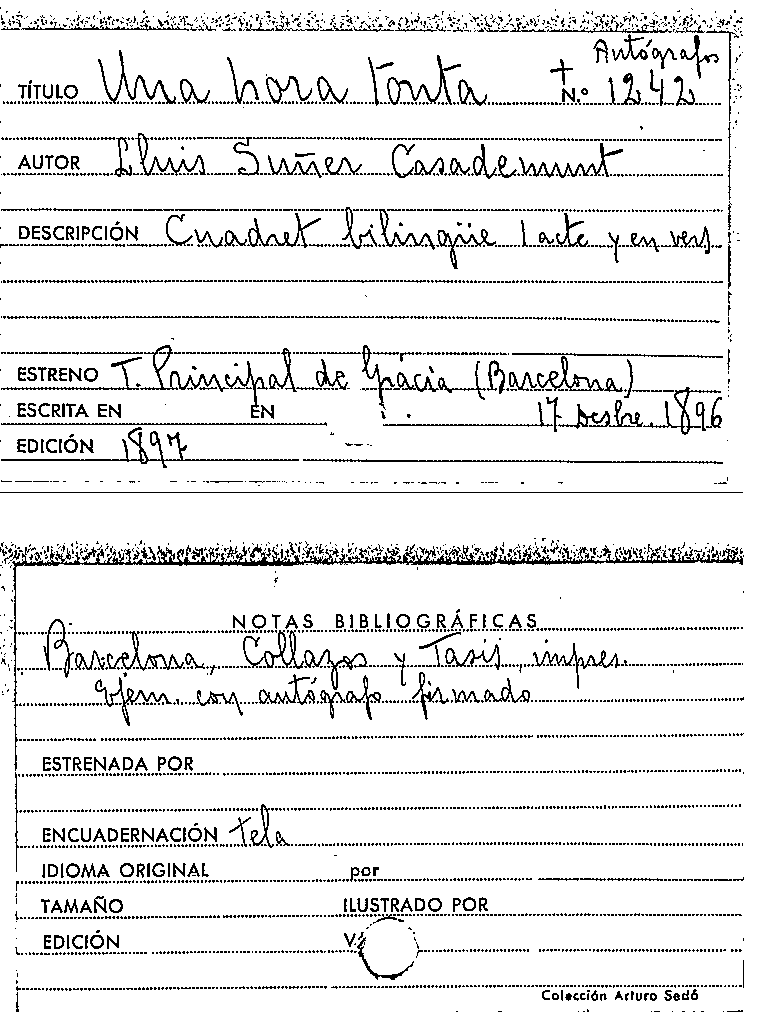 Autógrafos
TÍTULO Una hora tonta + N.º 1242
AUTOR Lluis Suñer Casademunt
DESCRIPCIÓN Cuadret bilingüe 1 acte y en vers
ESTRENO T. Principal de Gràcia (Barcelona)
ESCRITA EN EN 17 Desbre. 1896
EDICIÓN 1897
NOTAS BIBLIOGRÁFICAS
Barcelona, Collazos y Tasis, impres.
Ejem. con autógrafo firmado
ESTRENADA POR
ENCUADERNACIÓN tela
IDIOMA ORIGINAL por
TAMAÑO ILUSTRADO POR
EDICIÓN
Colección Arturo Sedó